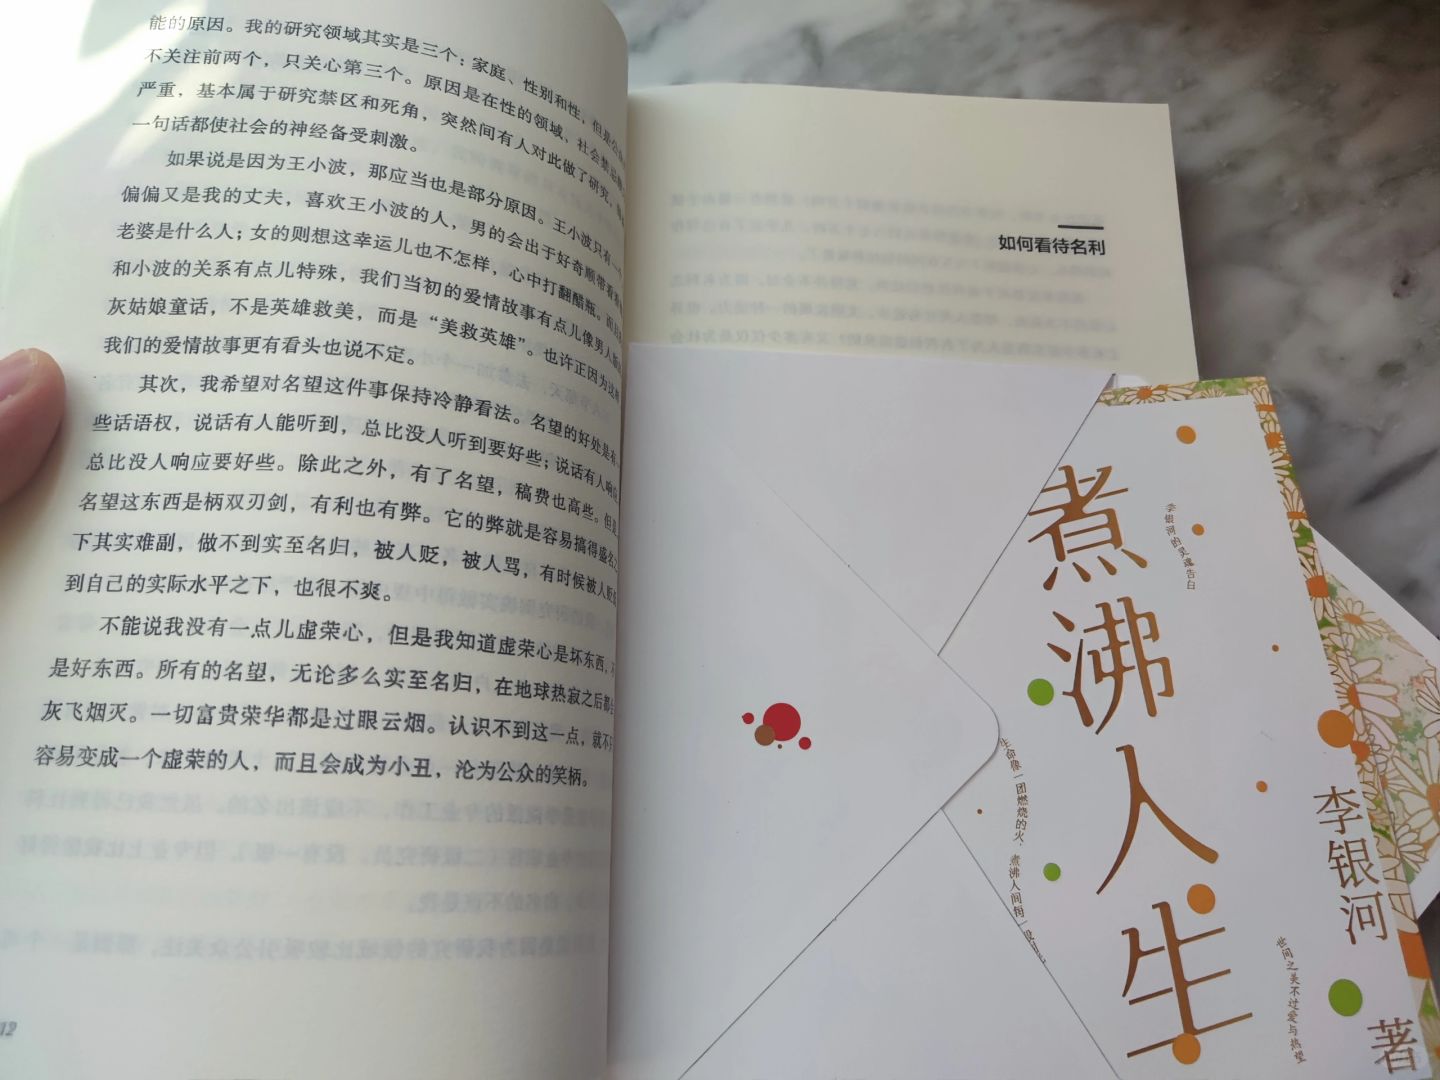 能的原因。我的研究领域其实是三个：家庭、性别和性，但是公
不关注前两个，只关心第三个。原因是在性的领域、社会禁忌
严重，基本属于研究禁区和死角，突然间有人对此做了研究，
一句话都使社会的神经备受刺激。
如果说是因为王小波，那应当也是部分原因。王小波只有一个
偏偏又是我的丈夫，喜欢王小波的人，男的会出于好奇顺带看
老婆是什么人；女的则想这幸运儿也不怎样，心中打翻醋瓶。而且
和小波的关系有点儿特殊，我们当初的爱情故事有点儿像男人版
灰姑娘童话，不是英雄救美，而是“美救英雄”。也许正因为这
我们的爱情故事更有看头也说不定。
其次，我希望对名望这件事保持冷静看法。名望的好处是有
些话语权，说话有人能听到，总比没人听到要好些；说话有人响应
总比没人响应要好些。除此之外，有了名望，稿费也高些。但是
名望这东西是柄双刃剑，有利也有弊。它的弊就是容易搞得盛名之
下其实难副，做不到实至名归，被人贬，被人骂，有时候被人贬
到自己的实际水平之下，也很不爽。
不能说我没有一点儿虚荣心，但是我知道虚荣心是坏东西，不
是好东西。所有的名望，无论多么实至名归，在地球热寂之后都
灰飞烟灭。一切富贵荣华都是过眼云烟。认识不到这一点，就不
容易变成一个虚荣的人，而且会成为小丑，沦为公众的笑柄。
12
如何看待名利
煮沸人生
李银河的灵魂告白
生命像一团燃烧的火，煮沸人间每一
世间之美不过爱与热望
李银河 著